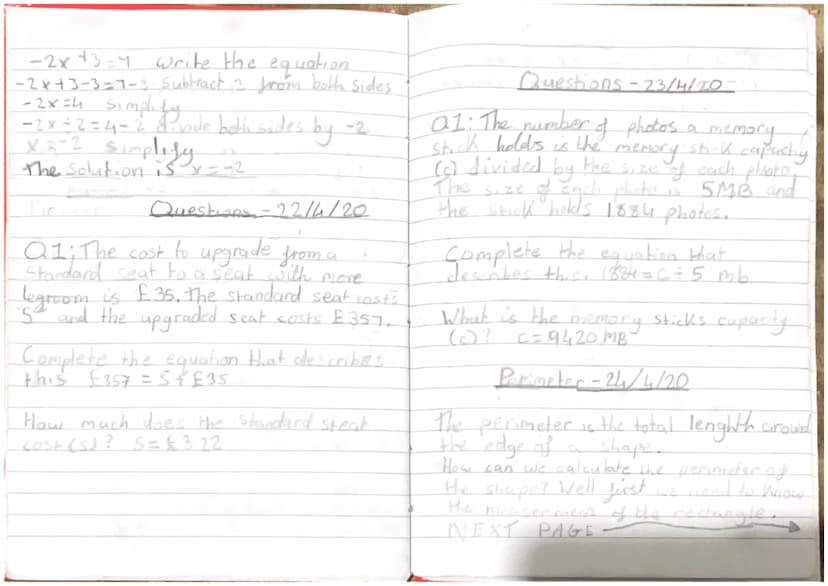 -2x+3=7 write the equation
-2x+3-3=7-3 Subtract 3 from both sides
-2x=4 Simplify
-2x÷2=4-2 divide both sides by -2
x=-2 Simplify
The Solution is x=-2
Questions - 22/4/20
Q1; The cost to upgrade from a
Standard seat to a seat with more
legroom is £35. The standard seat costs
"S" and the upgraded seat costs £357.
Complete the equation that describes
this £357 = S + £35
How much does the standard steat
cost (s)? S=£322
Questions - 23/4/20
Q1: The number of photos a memory
stick holds is the memory stick capacity
(c) divided by the size of each photo.
The size of each photo is 5MB and
the stick holds 1884 photos.
Complete the equation that
describes this. 1884 = c ÷ 5 mb
What is the memory sticks capasity
(c)? c=9420 MB
Perimeter - 24/4/20
The perimeter is the total lenghth around
the edge of a shape.
How can we calculate the perimeter of
the shape? Well first we need to know
the measerment of the rectangle.
NEXT PAGE